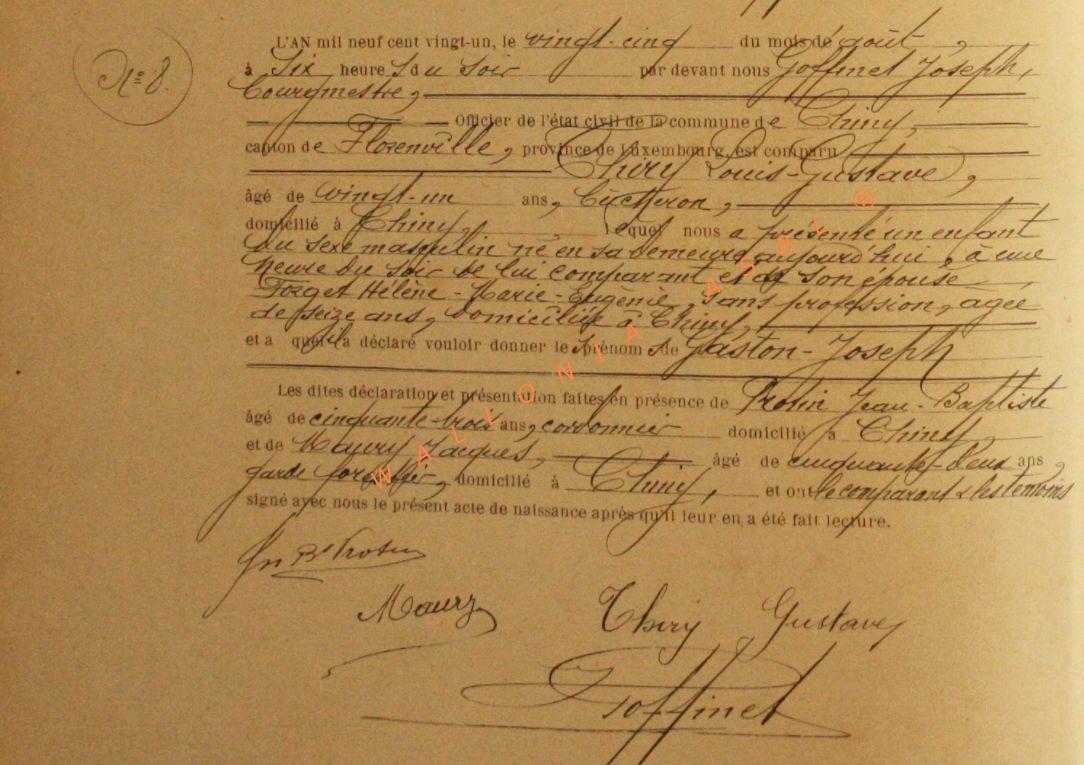 L'AN mil neuf cent vingt-un, le vingt-cinq du mois de août,
N° 8.
à Six heures du soir par devant nous Goffinet Joseph,
Bourgmestre,
Officier de l'état civil de la commune de Chiny,
canton de Florenville, province de Luxembourg, est comparu
Thiry Louis-Gustave,
âgé de vingt-un ans, bûcheron,
domicilié à Chiny, lequel nous a présenté un enfant
du sexe masculin né en sa demeure aujourd'hui, à une
heure du soir de lui comparant et de son épouse
Forget Hélène-Marie-Eugénie, sans profession, agée
de seize ans, domiciliée à Chiny,
et a quel il a déclaré vouloir donner les prénoms de Gaston-Joseph
Les dites déclaration et présentation faites en présence de Protin Jean-Baptiste
âgé de cinquante-trois ans, cordonnier domicilié à Chiny,
et de Maury Jacques, âgé de cinquante-deux ans,
garde forestier, domicilié à Chiny, et ont le comparant & les témoins
signé avec nous le présent acte de naissance après qu'il leur en a été fait lecture.
Jn Bte Protin
Maury Thiry Gustave
Goffinet
WALLONIA ASBL ®